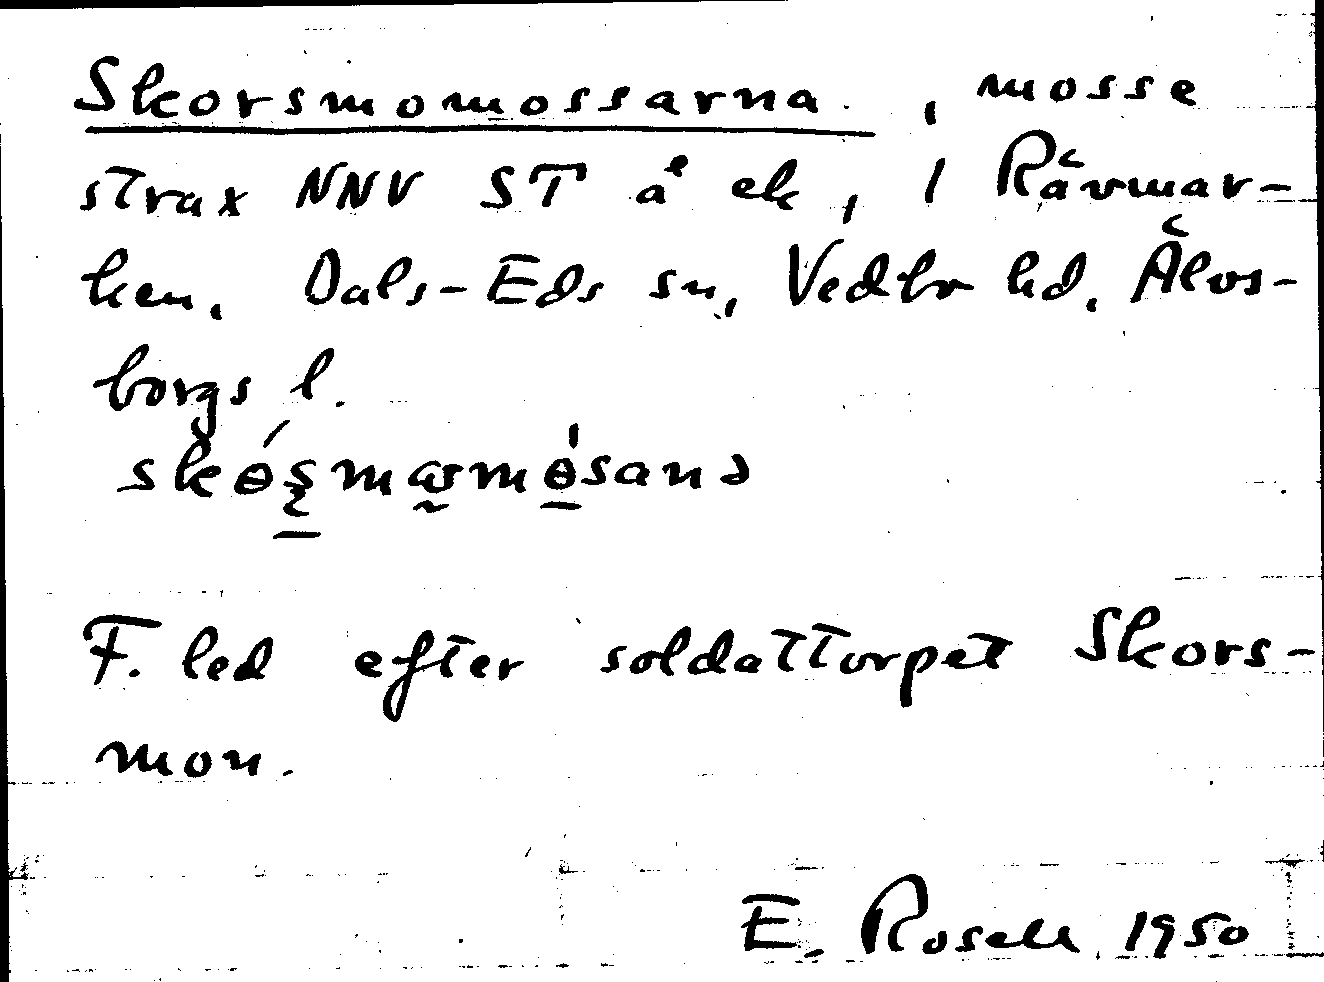 Skorsmomossarna, mosse
strax NNV ST å ek, i Rävmar-
ken, Dals-Eds sn, Vedbo hd. Älvs-
borgs l.
F. led efter soldattorpet Skors-
mon.
E. Rosell 1950